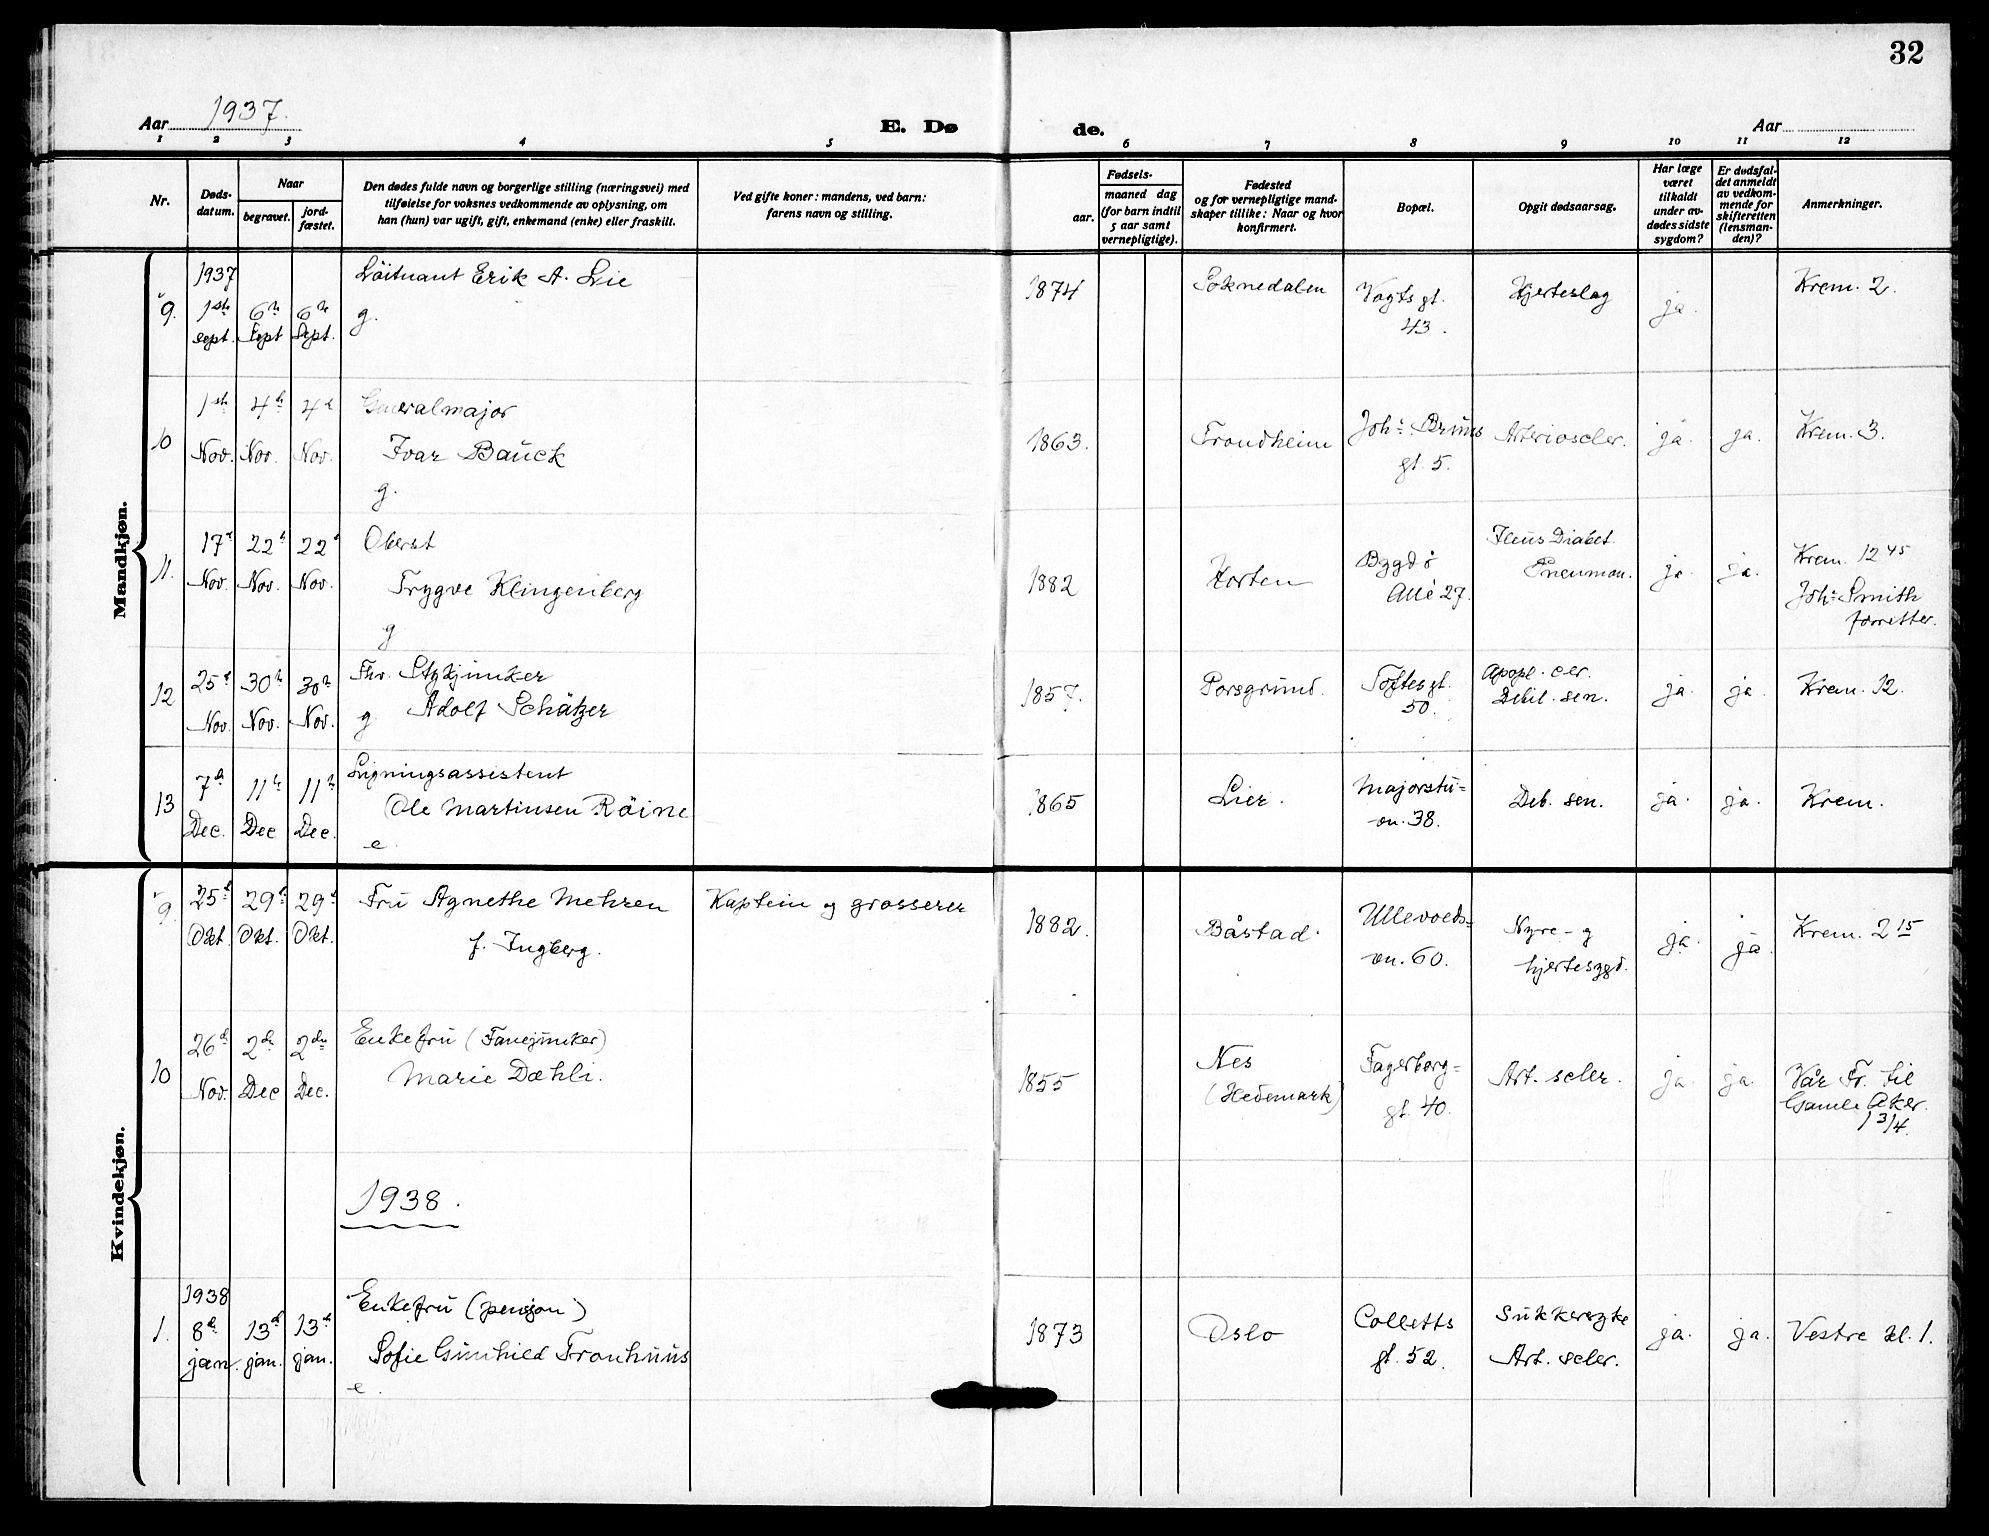 32
Aar 1937.
E. Dø
de.
Aar
1 2 3 4 5 6 7 8 9 10 11 12
Nr.
Døds-
datum.
Naar
begravet.
jord-
fæstet.
Den dødes fulde navn og borgerlige stilling (næringsvei) med
tilføielse for voksnes vedkommende av oplysning, om
han (hun) var ugift, gift, enkemand (enke) eller fraskilt.
Ved gifte koner: mandens, ved barn:
farens navn og stilling.
Fødsels-
aar.
maaned dag
(for barn indtil
5 aar samt
vernepligtige).
Fødested
og for vernepligtige mand-
skaper tillike: Naar og hvor
konfirmert.
Bopæl.
Opgit dødsaarsag.
Har læge
været
tilkaldt
under av-
dødes sidste
sygdom?
Er dødsfal-
det anmeldt
av vedkom-
mende for
skifteretten
(lensman-
den)?
Anmerkninger.
Mandkjøn.
1937
9. 1ste sept. 6te Sept 6te Sept.
Löitnant Erik A. Lie
g.
1874
Soknedalen
Vogts gt.
43.
Hjerteslag
ja.
Krem. 2.
10 1ste Nov. 4de Nov. 4de Nov.
Generalmajor
Ivar Bauck
g.
1863.
Trondheim
Johs. Bruns
gt. 5.
Arterioscler.
ja. ja.
Krem. 3.
11. 17de Nov. 22de Nov. 22de Nov.
Oberst
Trygve Klingenberg
g
1882
Horten
Bygdø
Allé 27.
Ileus Diabet.
Pneumon.
ja. ja.
Krem. 12 45
Johs. Smith
forretter.
12 25de Nov. 30te Nov. 30te Nov.
Fhv. Stykjunker
g Adolf Schätzer
1857.
Porsgrund.
Toftes gt.
50.
Apopl. cer.
Debil. sen.
ja ja.
Krem. 12.
13 7de Dec. 11te Dec 11te Dec.
Ligningsassistent
Ole Martinsen Röine
e.
1865
Lier.
Majorstu-
vn. 38.
Deb. sen.
ja. ja.
Krem.
Kvindekjøn.
9. 25de Okt. 29de Okt. 29de Okt.
Fru Agnethe Mehren
f. Ingberg.
Kaptein og grosserer
1882.
Båstad.
Ullevolds-
vn. 60.
Nyre- g
hjertesygd.
ja. ja
Krem. 2 15
10 26de Nov. 2den Dec 2den Dec.
Enkefru (Fanejunker)
Marie Dæhli.
1855
Nes
(Hedemark)
Fagerborg-
gt. 40.
Art. scler.
ja. ja.
Vår Fr. til
Gamle Aker.
1 3/4.
1938.
1938
1. 8de jan. 13de jan. 13de jan.
Enkefru (pensjon)
Sofie Gunhild Tronhuus
e.
1873
Oslo
Colletts
gt. 52.
Sukkersyke
Art. scler.
ja. ja.
Vestre kl. 1.